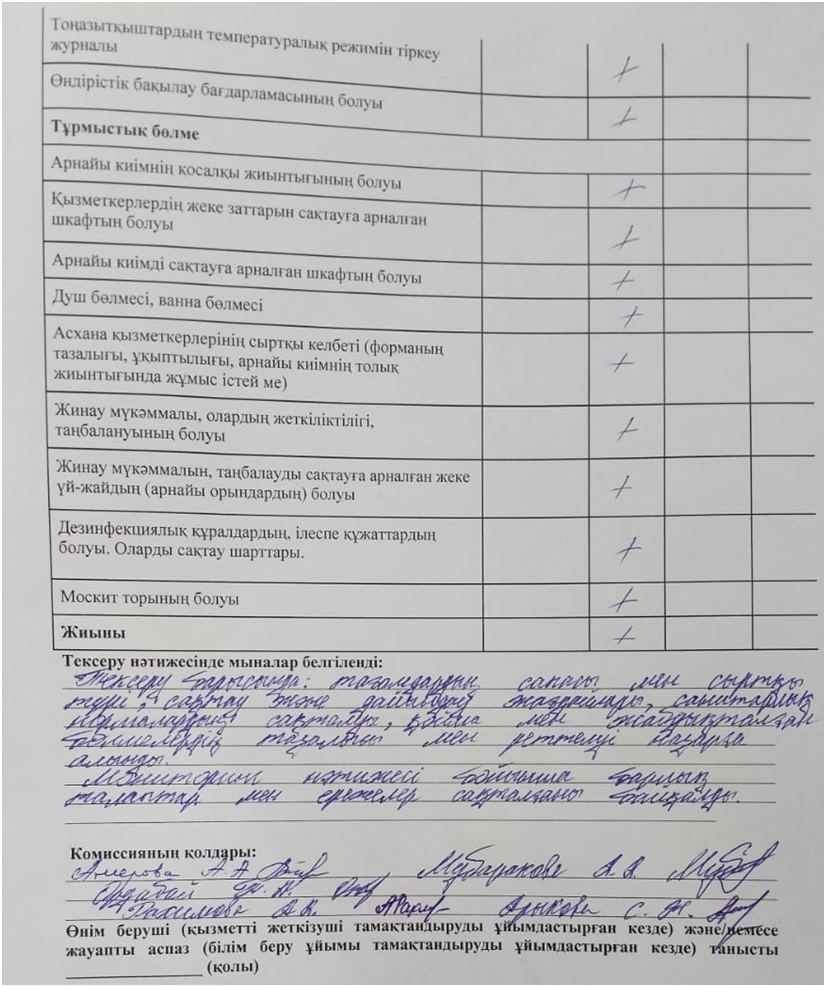 Тоңазытқыштардың температуралық режимін тіркеу
журналы +
Өндірістік бақылау бағдарламасының болуы +
Тұрмыстық бөлме
Арнайы киімнің қосалқы жиынтығының болуы +
Қызметкерлердің жеке заттарын сақтауға арналған
шкафтың болуы +
Арнайы киімді сақтауға арналған шкафтың болуы +
Душ бөлмесі, ванна бөлмесі +
Асхана қызметкерлерінің сыртқы келбеті (форманың
тазалығы, ұқыптылығы, арнайы киімнің толық +
жиынтығында жұмыс істей ме)
Жинау мүкәммалы, олардың жеткіліктілігі,
таңбалануының болуы +
Жинау мүкәммалын, таңбалауды сақтауға арналған жеке
үй-жайдың (арнайы орындардың) болуы +
Дезинфекциялық құралдардың, ілеспе құжаттардың
болуы. Оларды сақтау шарттары. +
Москит торының болуы +
Жиыны +
Тексеру нәтижесінде мыналар белгіленді:
Тексеру барысында: тағамдардың сапасы мен сыртқы
түрі, сақтау және дайындау жағдайлары, санитарлық
нормалардың сақталуы, қойма мен жабдықталған
бөлмелердің тазалығы мен реттелуі назарға
алынды.
Мониторинг нәтижесі бойынша барлық
талаптар мен ережелер сақталғаны байқалды.
Комиссияның қолдары:
А. А. Мубаракова А. А.
Рахимова А. К. Арыкова С. Ж.
Өнім беруші (қызметті жеткізуші тамақтандыруды ұйымдастырған кезде) және/немесе
жауапты аспаз (білім беру ұйымы тамақтандыруды ұйымдастырған кезде) танысты
(қолы)